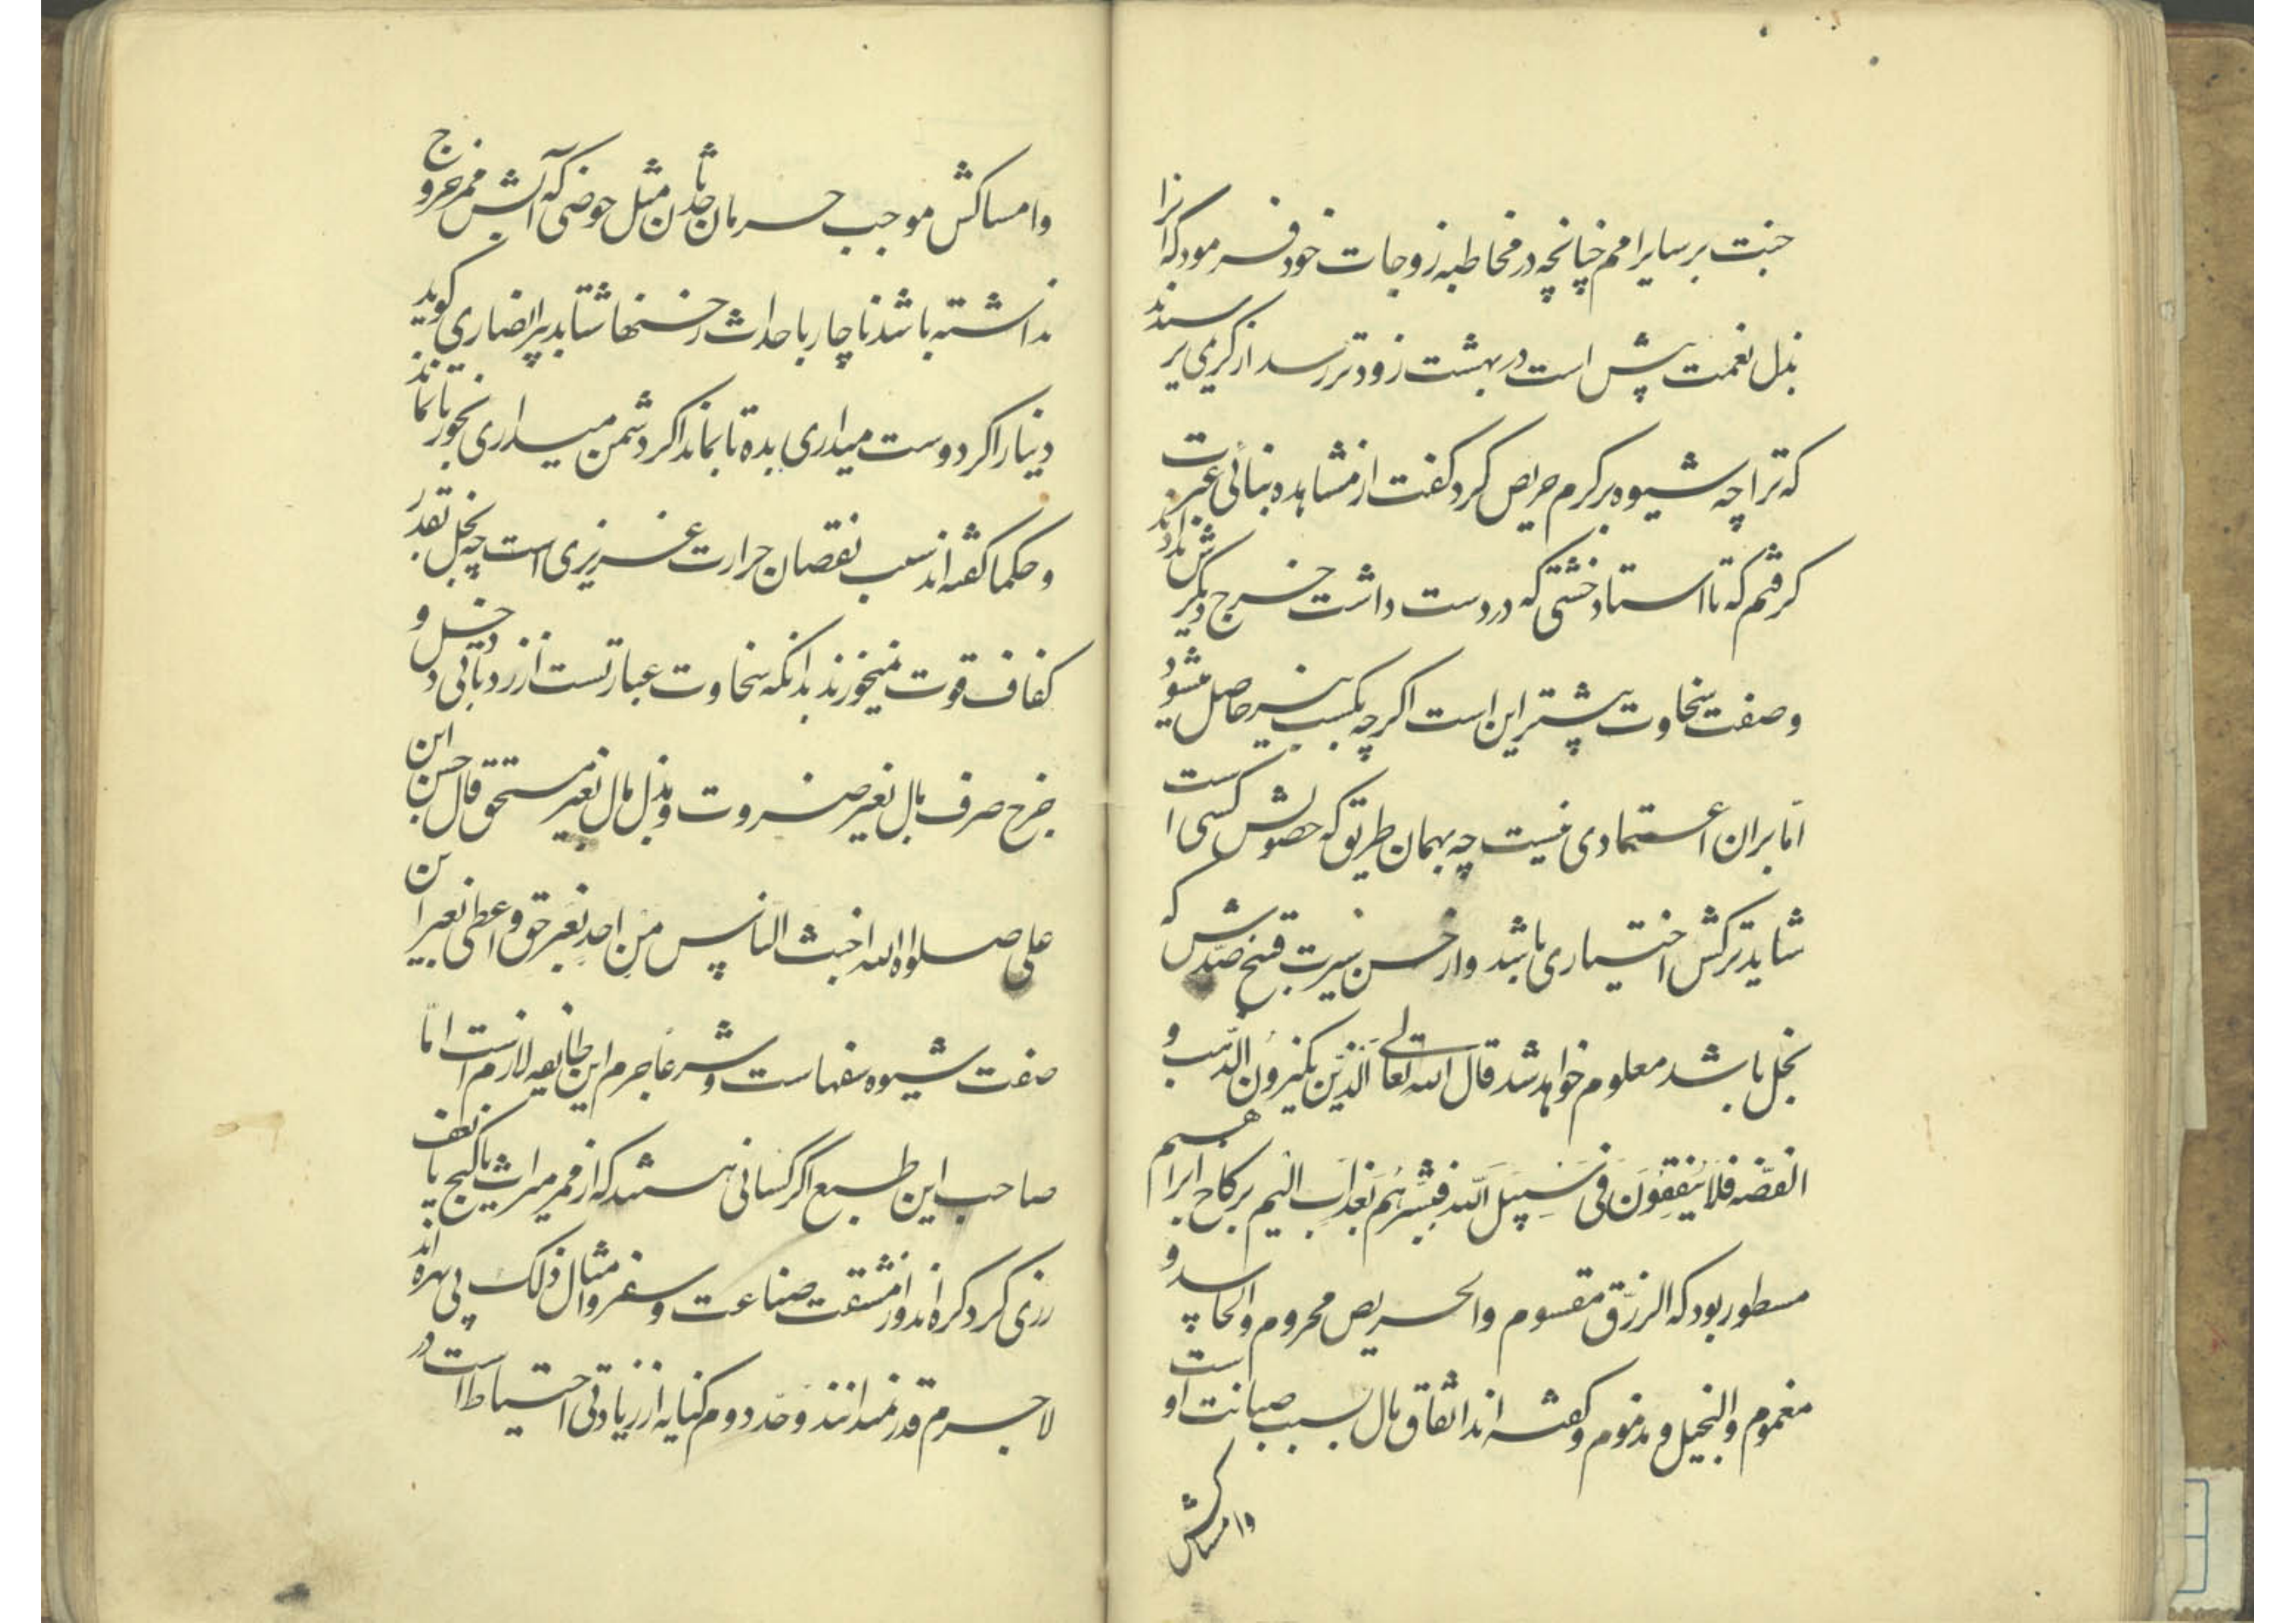 جنت بر سایر امم چنانچه در مخاطبه زوجات خود فرمود که انرا
بذل نعمت پیش است در بهشت زودتر رسد از کریمی پرسیدند
که ترا چه شیوه بر کرم حریص کرد گفت از مشاهده بنائی عبرت
گرفتم که تا استاد خشتی که در دست داشت خرج دیگرش ندادند
وصفت سخاوت پیشتر این است اگرچه بکسب نیز حاصل میشود
اما بران اعتمادی نیست چه بهمان طریق که حصولش کسی است
شاید ترکش اختیاری باشد و از حسن سیرت قبح ضدش که
بخل باشد معلوم خواهد شد قال الله تعالی الَّذین یکنزون الذهب و
الفضه فلا ینفقون فی سبیل الله فبشرهم بعذاب الیم بر کاخ ابراهیم
مسطور بود که الرزق مقسوم والحریص محروم والحاسد و
مغموم والبخیل و مذموم و گفته اند انفاق مال بسبب صیانت اوست
وامساکش
وامساکش موجب حرمان مثل حوضی که آبش ممر خروج
نداشته باشد ناچار باحداث رخنها شتابد پیر انصاری گوید
دینار را کر دوست میداری بده تا بماند اکر دشمن میداری بخور تا نماند
وحکما کفته اند سبب نقصان حرارت غریزی است چه بخل بقدر
کفاف قوت نمیخورند بدانکه سخاوت عبارتست از زردیائی دخل و
خرج صرف مال بغیر ضرورت و بذل مال بغیر مستحق قال حسن ابن
علی صلواه الله اخبث الناس من اخذ بغیر حق و اعطی بغیر این
صفت شیوه سفهاست و شرعا جرم این طایفه لازم است اما
صاحب این طبع اگر کسانی هستند که از ممر میراث یا گنج یا
رزی کرد کرده اند و از مشقت صناعت و سفر و امثال ذلک بی بهره اند
لاجرم قدر نمیدانند و حد دوم کنایه از زیادتی احتیاط است در